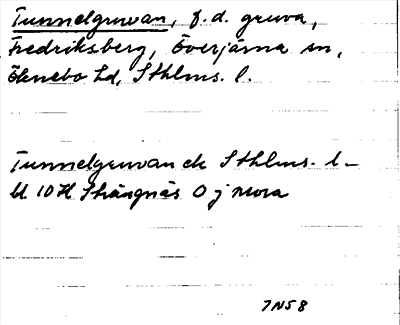 Tunnelgruvan, f.d. gruva,
Fredriksberg, Överjärna sn,
Öknebo hd, Sthlms. l.
Tunnelgruvan ek Sthlms. l -
bl 10 H Strängnäs O j
7N58